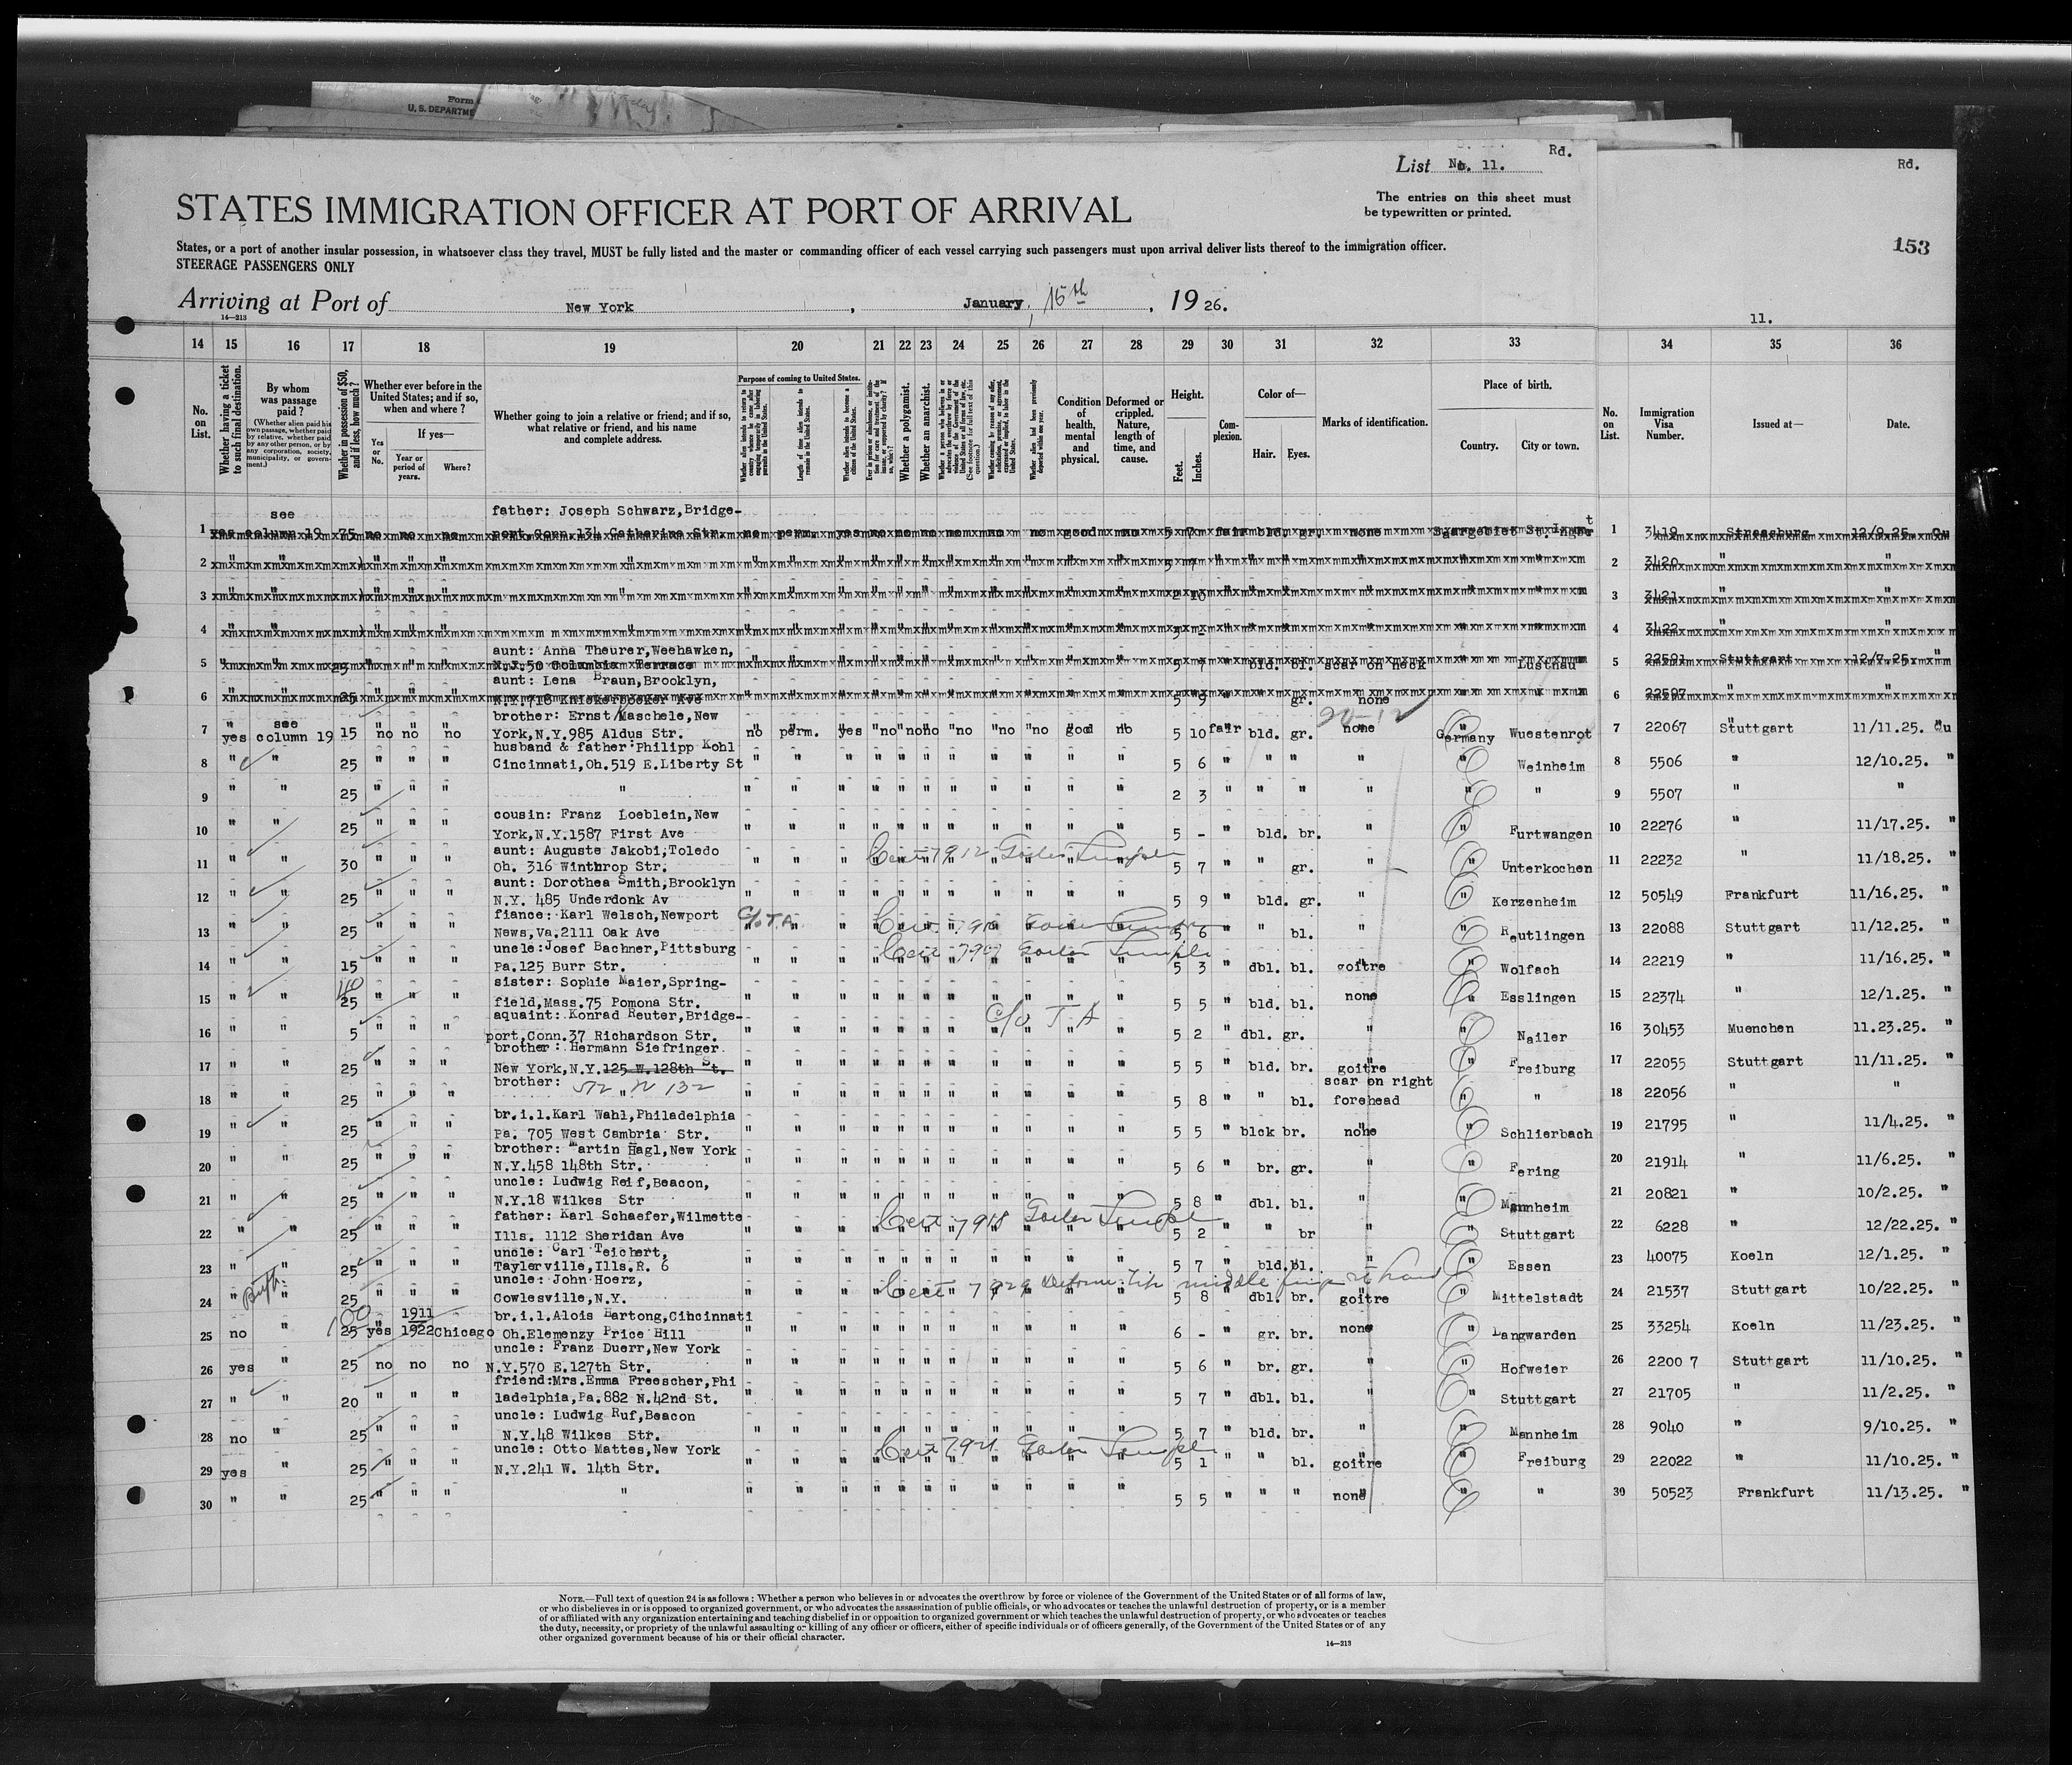 Form
U. S. DEPARTME
Rd.
Rd.
List No. 11.
The entries on this sheet must
be typewritten or printed.
153
STATES IMMIGRATION OFFICER AT PORT OF ARRIVAL
States, or a port of another insular possession, in whatsoever class they travel, MUST be fully listed and the master or commanding officer of each vessel carrying such passengers must upon arrival deliver lists thereof to the immigration officer.
STEERAGE PASSENGERS ONLY
Arriving at Port of New York, January, 15th, 1926.
14—213
11.
14 15 16 17 18 19 20 21 22 23 24 25 26 27 28 29 30 31 32 33 34 35 36
No. on List.
Whether having a ticket to such final destination.
By whom was passage paid?
(Whether alien paid his own passage, whether paid by relative, whether paid by any other person, or by any corporation, society, municipality, or government.)
Whether in possession of $50, and if less, how much?
Whether ever before in the United States; and if so, when and where?
Yes or No.
If yes—
Year or period of years.
Where?
Whether going to join a relative or friend; and if so, what relative or friend, and his name and complete address.
Purpose of coming to United States.
Length of time alien intends to remain in the United States.
Whether alien intends to become a citizen of the United States.
Whether a polygamist.
Whether an anarchist.
Condition of health, mental and physical.
Deformed or crippled. Nature, length of time, and cause.
Height.
Feet.
Inches.
Complexion.
Color of—
Hair.
Eyes.
Marks of identification.
Place of birth.
Country.
City or town.
No. on List.
Immigration Visa Number.
Issued at—
Date.
see father: Joseph Schwarz, Bridge-
1 yes column 19 75 no no no port Conn. 134 Catherine Str. no perm. yes no no no no no no good no 5 7 fair bld. gr. none Saargebiet St. 1 3419 Strassburg 12/9.25. Qu
2 " " " " " " 2 3420 " "
3 " " " " " " 2 10 3 3421 " "
4 " " " " " " 4 3422 " "
aunt: Anna Theurer, Weehawken,
5 " " 25 " " " N.J. 50 Columbia Terrace " bld. bl. scar on neck " Lustnau 5 22591 Stuttgart 12/7.25. "
aunt: Lena Braun, Brooklyn,
6 " " 25 " " " N.Y. 718 Knickerbocker Ave 5 9 gr. none 6 22597 " "
see brother: Ernst Maschele, New
7 yes column 19 15 no no no York, N.Y. 985 Aldus Str. no perm. yes "no "no no "no "no "no good no 5 10 fair bld. gr. none Germany Wuestenrot 7 22067 Stuttgart 11/11.25. Qu
husband & father: Philipp Kohl
8 " " 25 " " " Cincinnati, Oh. 519 E. Liberty St " 5 6 " " " " " Weinheim 8 5506 " 12/10.25. "
9 " " 25 " " " " 2 3 " " " " " " 9 5507 " "
cousin: Franz Loeblein, New
10 " " 25 " " " York, N.Y. 1587 First Ave 5 - " bld. br. " " Furtwangen 10 22276 " 11/17.25. "
aunt: Auguste Jakobi, Toledo
11 " " 30 " " " Oh. 316 Winthrop Str. 5 7 " " gr. " " Unterkochen 11 22232 " 11/18.25. "
aunt: Dorothea Smith, Brooklyn
12 " " 25 " " " N.Y. 485 Underdonk Av 5 9 " bld. gr. " " Kerzenheim 12 50549 Frankfurt 11/16.25. "
fiance: Karl Welsch, Newport
13 " " 25 " " " News, Va. 2111 Oak Ave 5 6 " " bl. " " Reutlingen 13 22088 Stuttgart 11/12.25. "
uncle: Josef Bachner, Pittsburg
14 " " 15 " " " Pa. 125 Burr Str. 5 3 " dbl. bl. goitre " Wolfach 14 22219 " 11/16.25. "
sister: Sophie Maier, Spring-
15 " " 40 25 " " " field, Mass. 75 Pomona Str. 5 5 " bld. bl. none " Esslingen 15 22374 " 12/1.25. "
aquaint: Konrad Reuter, Bridge-
16 " " 5 " " " port, Conn. 37 Richardson Str. 5 2 " dbl. gr. " " Nailer 16 30453 Muenchen 11.23.25. "
brother: Hermann Siefringer
17 " " 25 " " " New York, N.Y. 125 W. 128th St. 5 5 " bld. br. goitre " Freiburg 17 22055 Stuttgart 11/11.25. "
brother: 572 W 132 scar on right
18 " " 25 " " " " 5 8 " " bl. forehead " " 18 22056 " "
br.i.l. Karl Wahl, Philadelphia
19 " " 25 " " " Pa. 705 West Cambria Str. 5 5 " blck br. none " Schlierbach 19 21795 " 11/4.25. "
brother: Martin Hagl, New York
20 " " 25 " " " N.Y. 458 148th Str. 5 6 " br. gr. " " Fering 20 21914 " 11/6.25. "
uncle: Ludwig Reif, Beacon,
21 " " 25 " " " N.Y. 18 Wilkes Str 5 8 " dbl. bl. " " Mannheim 21 20821 " 10/2.25. "
father: Karl Schaefer, Wilmette
22 " " 25 " " " Ills. 1112 Sheridan Ave 5 2 " " br " " Stuttgart 22 6228 " 12/22.25. "
uncle: Carl Teichert,
23 " " 25 " " " Taylerville, Ills. R. 6 5 7 " bld. bl. " " Essen 23 40075 Koeln 12/1.25. "
uncle: John Hoerz,
24 " " 25 " " " Cowlesville, N.Y. 5 8 " dbl. br. goitre " Mittelstadt 24 21537 Stuttgart 10/22.25. "
100 1911 br.i.l. Alois Hartong, Cihcinnati
25 no " 25 yes 1922 Chicago Oh. Elemenzy Price Hill 6 - " gr. br. none " Langwarden 25 33254 Koeln 11/23.25. "
uncle: Franz Duerr, New York
26 yes " 25 no no no N.Y. 570 E. 127th Str. 5 6 " br. gr. " " Hofweier 26 2200 7 Stuttgart 11/10.25. "
friend: Mrs. Emma Freescher, Phi
27 " " 20 " " " ladelphia, Pa. 882 N. 42nd St. 5 7 " dbl. bl. " " Stuttgart 27 21705 " 11/2.25. "
uncle: Ludwig Ruf, Beacon
28 no " 25 " " " N.Y. 48 Wilkes Str. 5 7 " bld. br. " " Mannheim 28 9040 " 9/10.25. "
uncle: Otto Mattes, New York
29 yes " 25 " " " N.Y. 241 W. 14th Str. 5 1 " " bl. goitre " Freiburg 29 22022 " 11/10.25. "
30 " " 25 " " " " 5 5 " " " none " " 30 50523 Frankfurt 11/13.25. "
NOTE.—Full text of question 24 is as follows: Whether a person who believes in or advocates the overthrow by force or violence of the Government of the United States or of all forms of law,
or who disbelieves in or is opposed to organized government, or who advocates the assassination of public officials, or who advocates or teaches the unlawful destruction of property, or is a member
of or affiliated with any organization entertaining and teaching disbelief in or opposition to organized government or which teaches the unlawful destruction of property, or who advocates or teaches
the duty, necessity, or propriety of the unlawful assaulting or killing of any officer or officers, either of specific individuals or of officers generally, of the Government of the United States or of any
other organized government because of his or their official character.
14—213